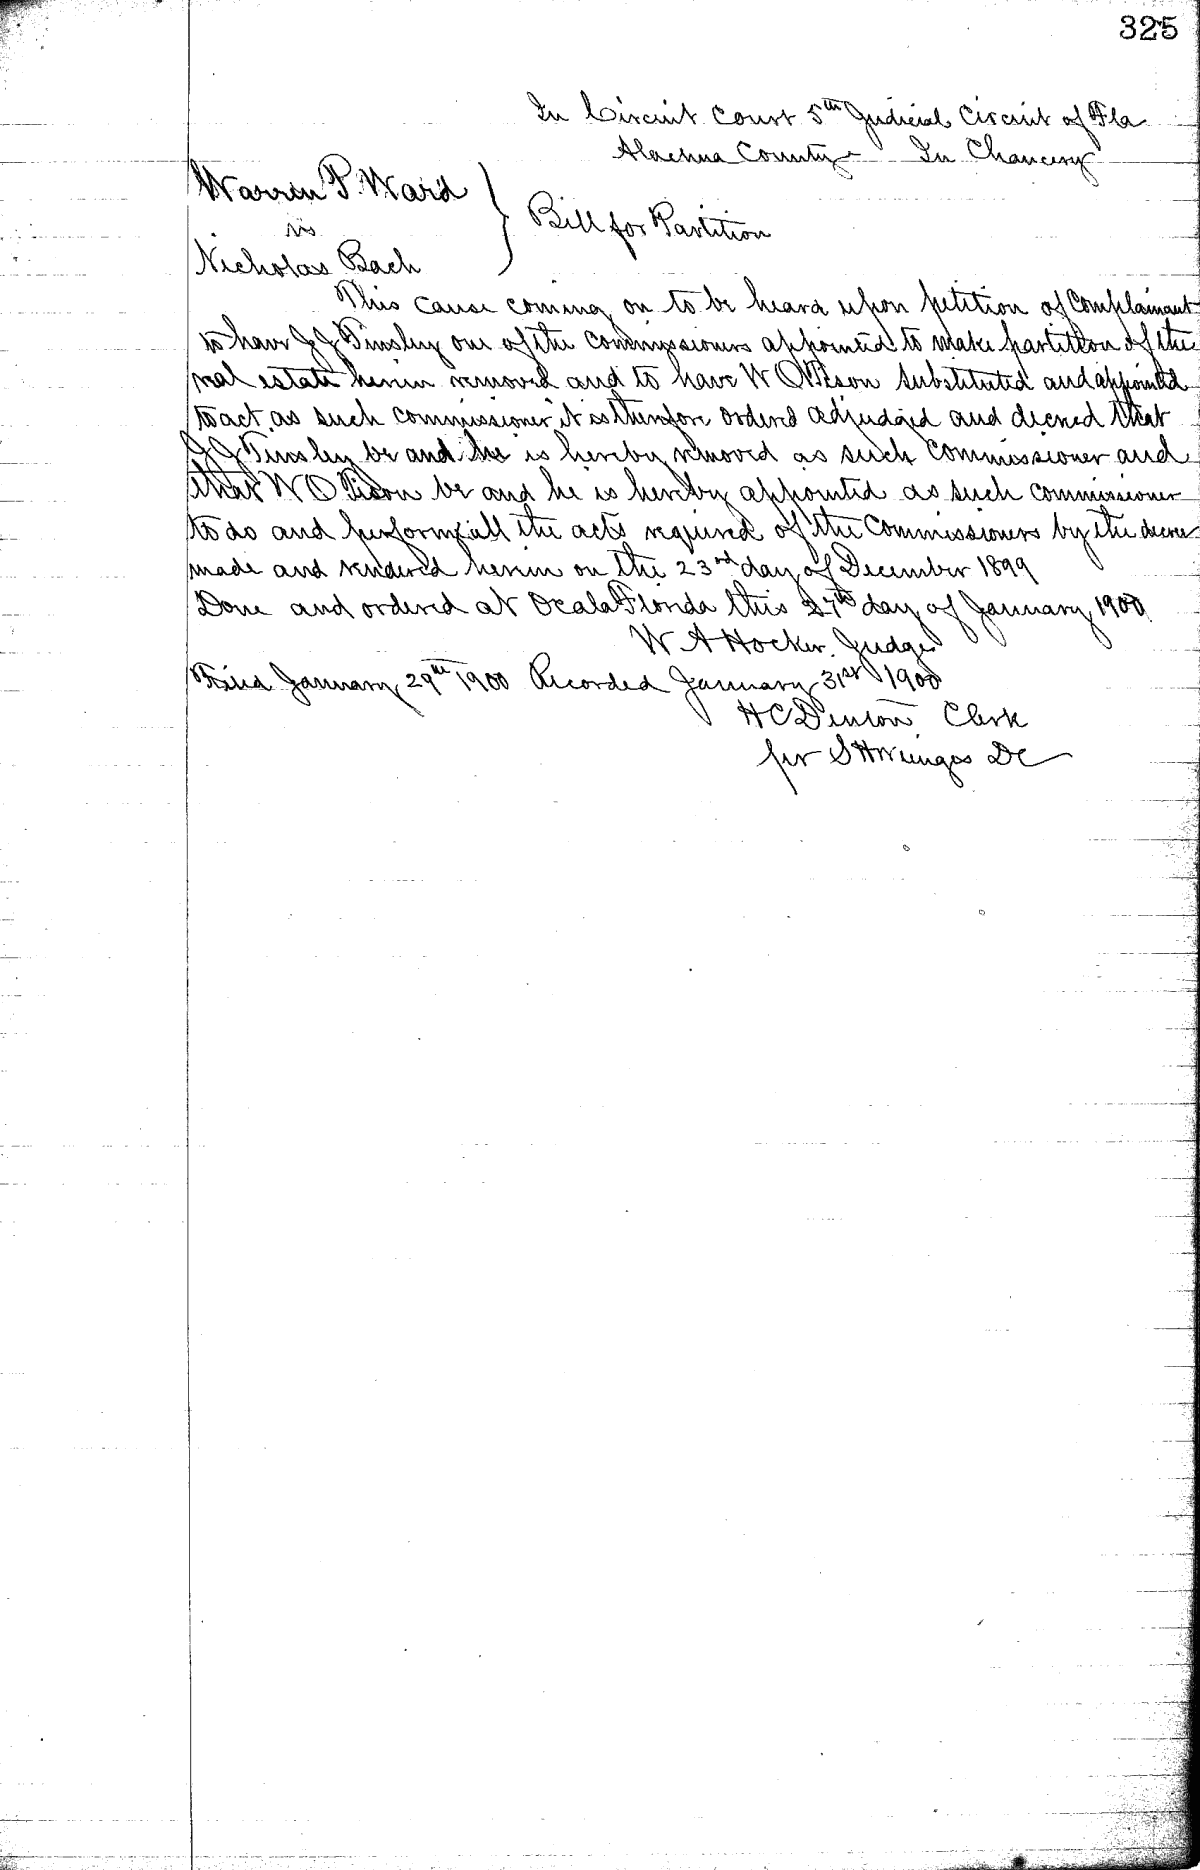 325
In Circuit Court 5th Judicial Circuit of Fla
Alachua County In Chancery
Warren P. Ward
vs
Nicholas Bach
Bill for Partition
This cause coming on to be heard upon petition of Complainant
to have J J Finsley one of the commissioners appointed to make partition of the
real estate herein removed and to have W O Tison substituted and appointed
to act as such commissioner it is therefore ordered adjudged and decreed that
J J Finsley be and he is hereby removed as such Commissioner and
that W O Tison be and he is hereby appointed as such commissioner
to do and perform all the acts required of the Commissioners by the decree
made and rendered herein on the 23rd day of December 1899
Done and ordered at Ocala Florida this 27th day of January 1900
W A Hocker Judge
Filed January 29th 1900 Recorded January 31st 1900
H C Denton Clerk
per S H Wienges DC